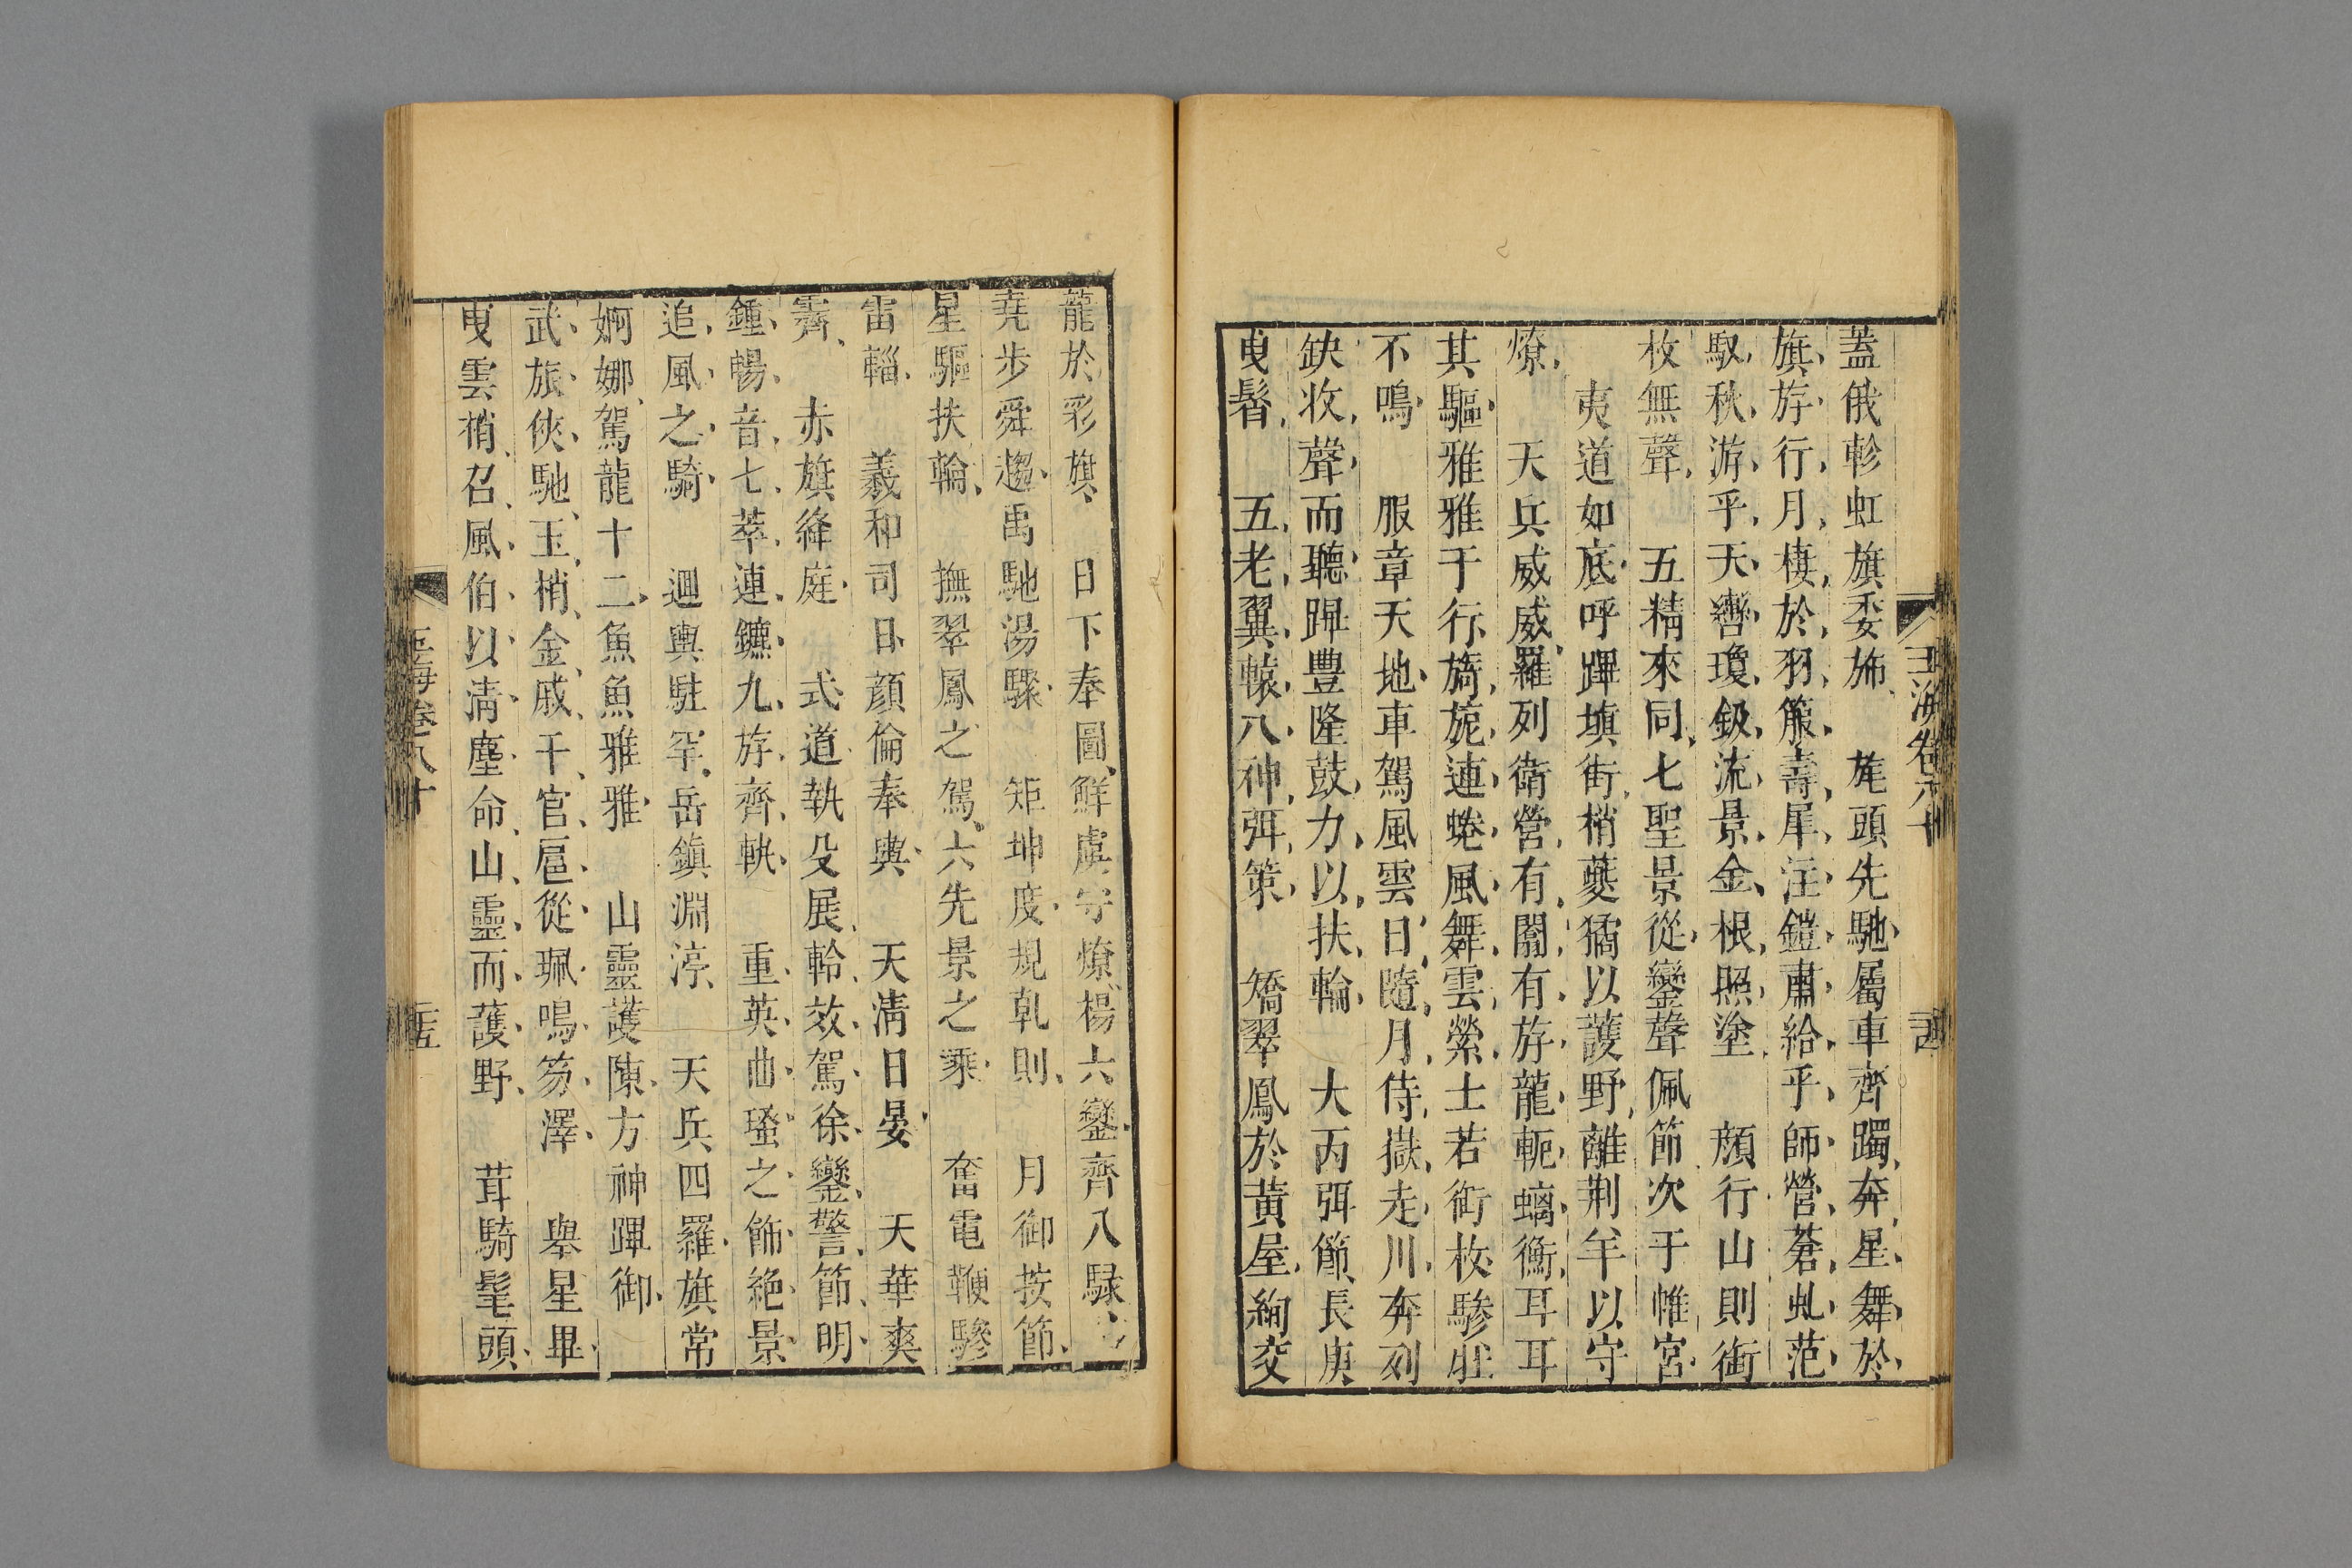 玉海卷八十
蓋俄軫虹旗委旆　旄頭先馳屬車齊躅奔星舞於
旗斿行月棲於羽箙壽犀注鎧肅給乎師營蒼虬范
馭秋游乎天轡瓊鈒流景金根照塗　顔行山則銜
枚無聲　五精來同七聖景從鑾聲佩節次于帷宮
夷道如底呼蹕填街梢夔獝以護野離荆羊以守
燎　天兵威威羅列衛營有闟有斿龍軛螭衡耳耳
其驅雅雅于行旖旎連蜷風舞雲縈士若銜枚驂壯
不鳴　服章天地車駕風雲日隨月侍嶽走川奔列
缺收聲而聽蹕豐隆鼓力以扶輪　大丙弭節長庚
曳髾　五老翼轅八神弭策　矯翠鳳於黄屋絢交
龍於彩旗　日下奉圖鮮虞守燎楊六鑾齊八騄
堯步舜趨禹馳湯驟　矩坤度規乹則　月御按節
星驅扶輪　撫翠鳳之駕六先景之乘　奮電鞭驂
雷輜　羲和司日顔倫奉輿　天清日晏　天華爽
霽　赤旗絳庭　式道執殳展軨效駕徐鑾警節明
鍾暢音七萃連鑣九斿齊軼　重英曲瑵之飾絶景
追風之騎　迴輿駐罕岳鎮淵渟　天兵四羅旗常
婀娜駕龍十二魚魚雅雅　山靈護陳方神蹕御
武旅俠馳玉梢金戚千官扈從珮鳴笏澤　擧星畢
曳雲梢召風伯以清塵命山靈而護野　茸騎髦頭
玉海卷八十